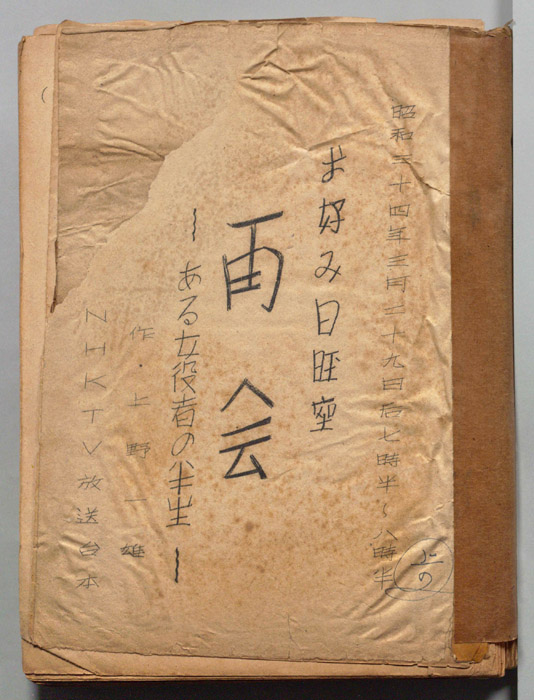 昭和三十四年三月二十九日后七時半〜八時半
お好み日曜座
再会
〜ある女役者の半生〜
作・上野一雄
NHKTV放送台本